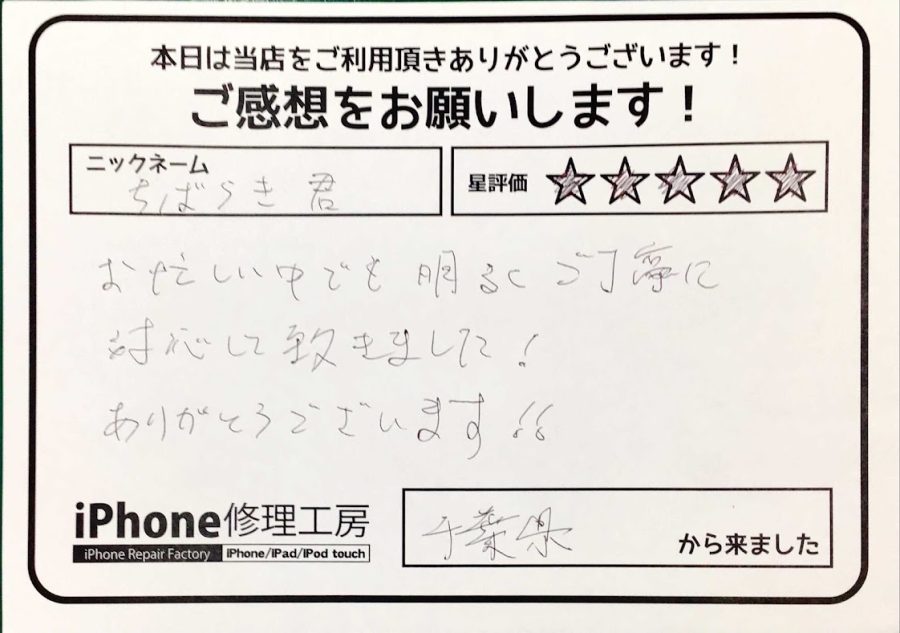 本日は当店をご利用頂きありがとうございます!
ご感想をお願いします!
ニックネーム
ちばらき 君
星評価 ★★★★★
お忙しい中でも 明るく ご丁寧に
対応して致きました!
ありがとうございます!!
iPhone修理工房
iPhone Repair Factory iPhone/iPad/iPod touch
千葉県 から来ました